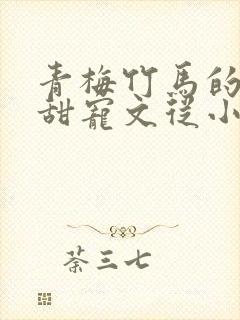 青梅竹馬的
甜寵文從小
荼三七